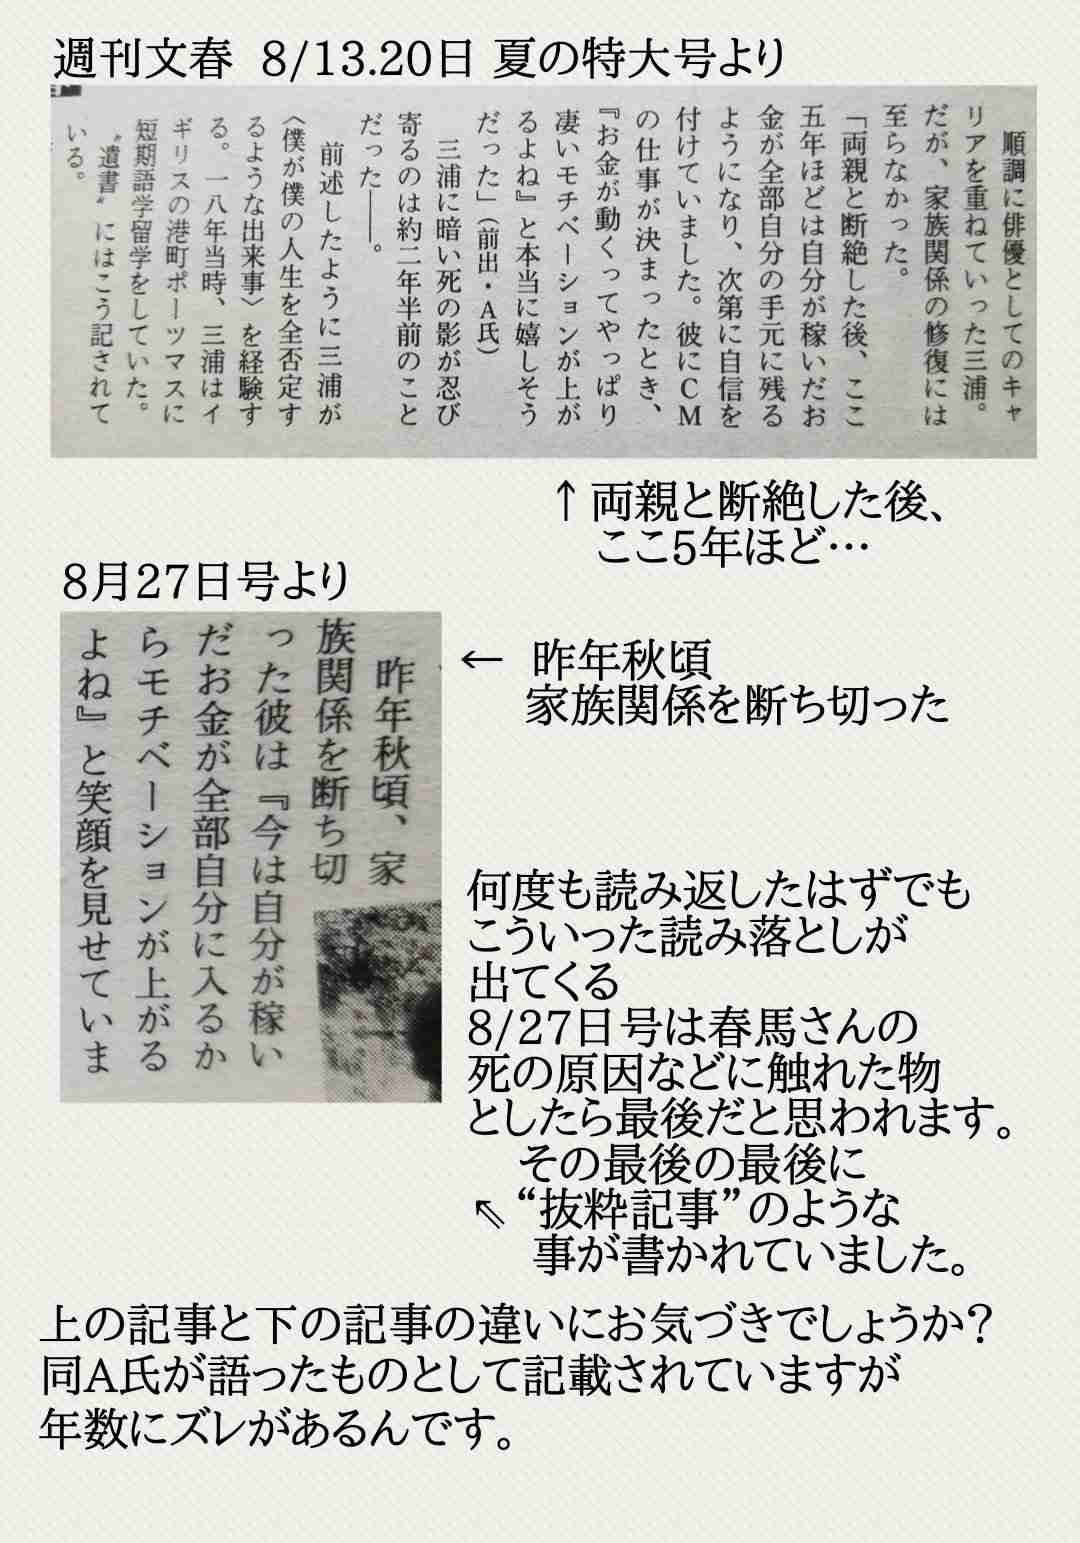 週刊文春 8/13.20日 夏の特大号より
順調に俳優としてのキャ
リアを重ねていった三浦。
だが、家族関係の修復には
至らなかった。
「両親と断絶した後、ここ
五年ほどは自分が稼いだお
金が全部自分の手元に残る
ようになり、次第に自信を
付けていました。彼にCM
の仕事が決まったとき、
『お金が動くってやっぱり
凄いモチベーションが上が
るよね』と本当に嬉しそう
だった」(前出・A氏)
三浦に暗い死の影が忍び
寄るのは約二年半前のこと
だった――。
前述したように三浦が
〈僕が僕の人生を全否定す
るような出来事〉を経験す
る。一八年当時、三浦はイ
ギリスの港町ポーツマスに
短期語学留学をしていた。
〝遺書〟にはこう記されて
いる。
↑両親と断絶した後、
ここ5年ほど…
8月27日号より
昨年秋頃、家
族関係を断ち切
った彼は『今は自分が稼い
だお金が全部自分に入るか
らモチベーションが上がる
よね』と笑顔を見せていま
← 昨年秋頃
家族関係を断ち切った
何度も読み返したはずでも
こういった読み落としが
出てくる
8/27日号は春馬さんの
死の原因などに触れた物
としたら最後だと思われます。
その最後の最後に
⇖“抜粋記事”のような
事が書かれていました。
上の記事と下の記事の違いにお気づきでしょうか?
同A氏が語ったものとして記載されていますが
年数にズレがあるんです。